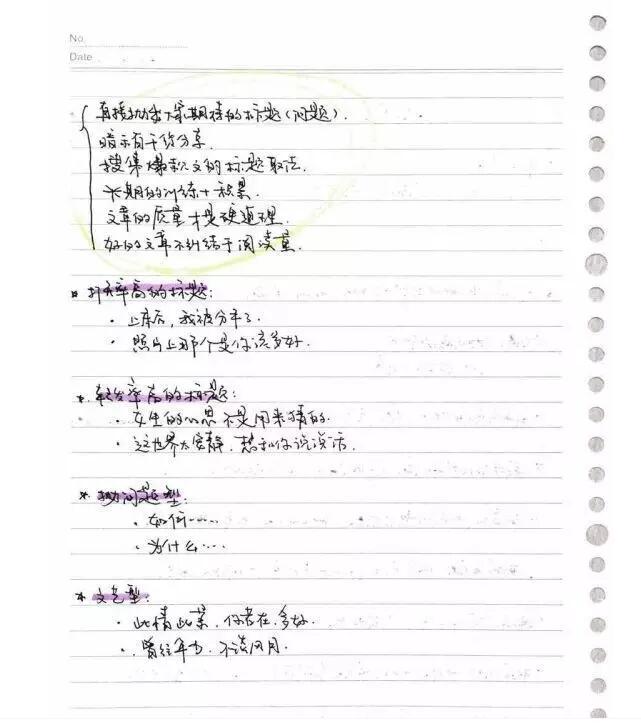 No.
Date
直接抛出下篇期待的标题(问题).
暗示有干货分享.
搜集爆款文的标题取法
长期的训练+积累
文章的质量才是硬道理.
好的文章不纠结于阅读量.
* 打开率高的标题:
· 上床后,我被分手了.
· 照片上那个是你该多好.
* 转发率高的标题:
· 女生的心思不是用来猜的.
· 这世界太安静,想和你说说话.
* 抛问题型:
· 如何……
· 为什么…
* 文艺型:
· 此情此景,你若在,多好.
· 曾经年少,不谈风月.